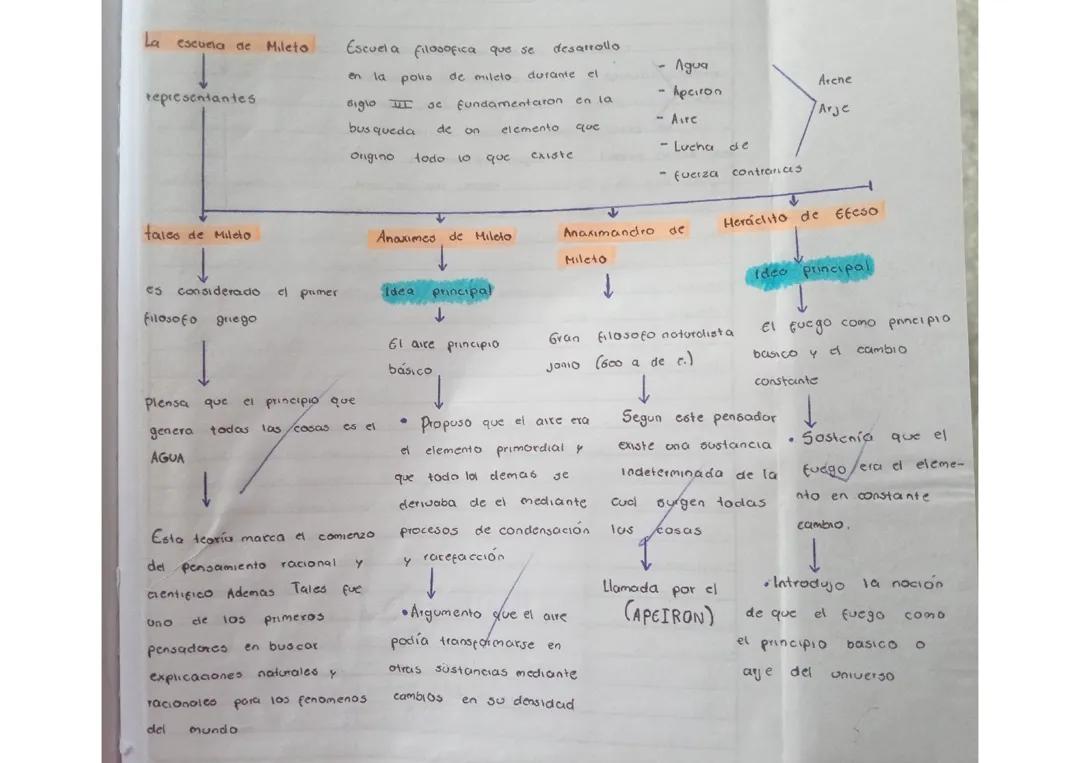 La escuela de Mileto
representantes
Escuela filosofica que se desarrollo
en la polis de mileto durante el
siglo III se fundamentaron en la
busqueda de un elemento que
origino todo lo que existe
- Agua
- Apeiron
- Aire
- Lucha de
- fuerza contrarias
Arche
Arje
tales de Mileto
es considerado el primer
filosofo griego
Piensa que el principio que
genera todas las cosas es el
AGUA
Esta teoría marca el comienzo
del pensamiento racional y
cientifico Ademas Tales fue
uno de los primeros
pensadores en buscar
explicaciones naturales y
racionales para los fenomenos
del mundo
Anaximes de Mileto
Idea principal
El aire principio
básico
• Propuso que el aire era
el elemento primordial y
que todo lo demas se
derivaba de el mediante
procesos de condensación
y rarefacción
• Argumento que el aire
podía transformarse en
otras sustancias mediante
cambios en su densidad
Anaximandro de
Mileto
Gran filosofo naturalista
jonio (600 a de c.)
Segun este pensador
existe una sustancia
indeterminada de la
cual surgen todas
las cosas
Llamada por el
(APEIRON)
Heráclito de Efeso
Idea principal
El fuego como principio
basico y el cambio
constante
• Sostenía que el
fuego era el eleme-
nto en constante
cambio.
• Introdujo la noción
de que el fuego como
el principio basico o
arje del universo